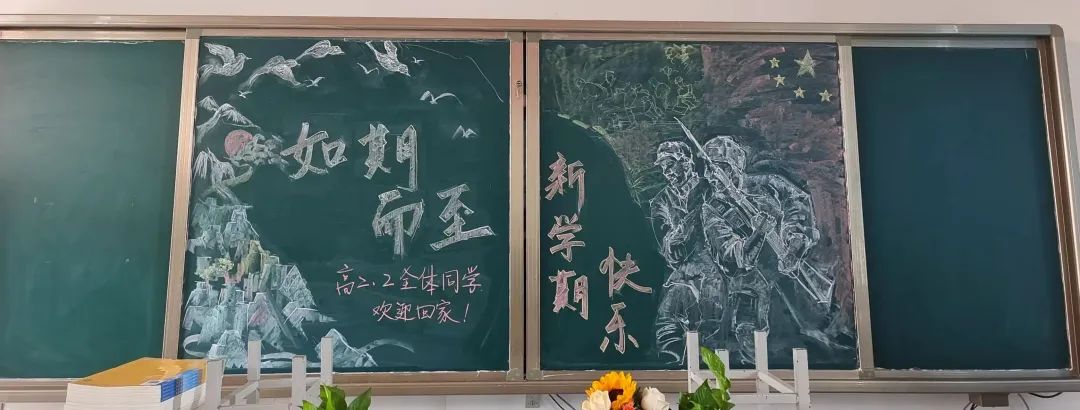 如期
而至
高二.2全体同学
欢迎回家!
新学期
快乐